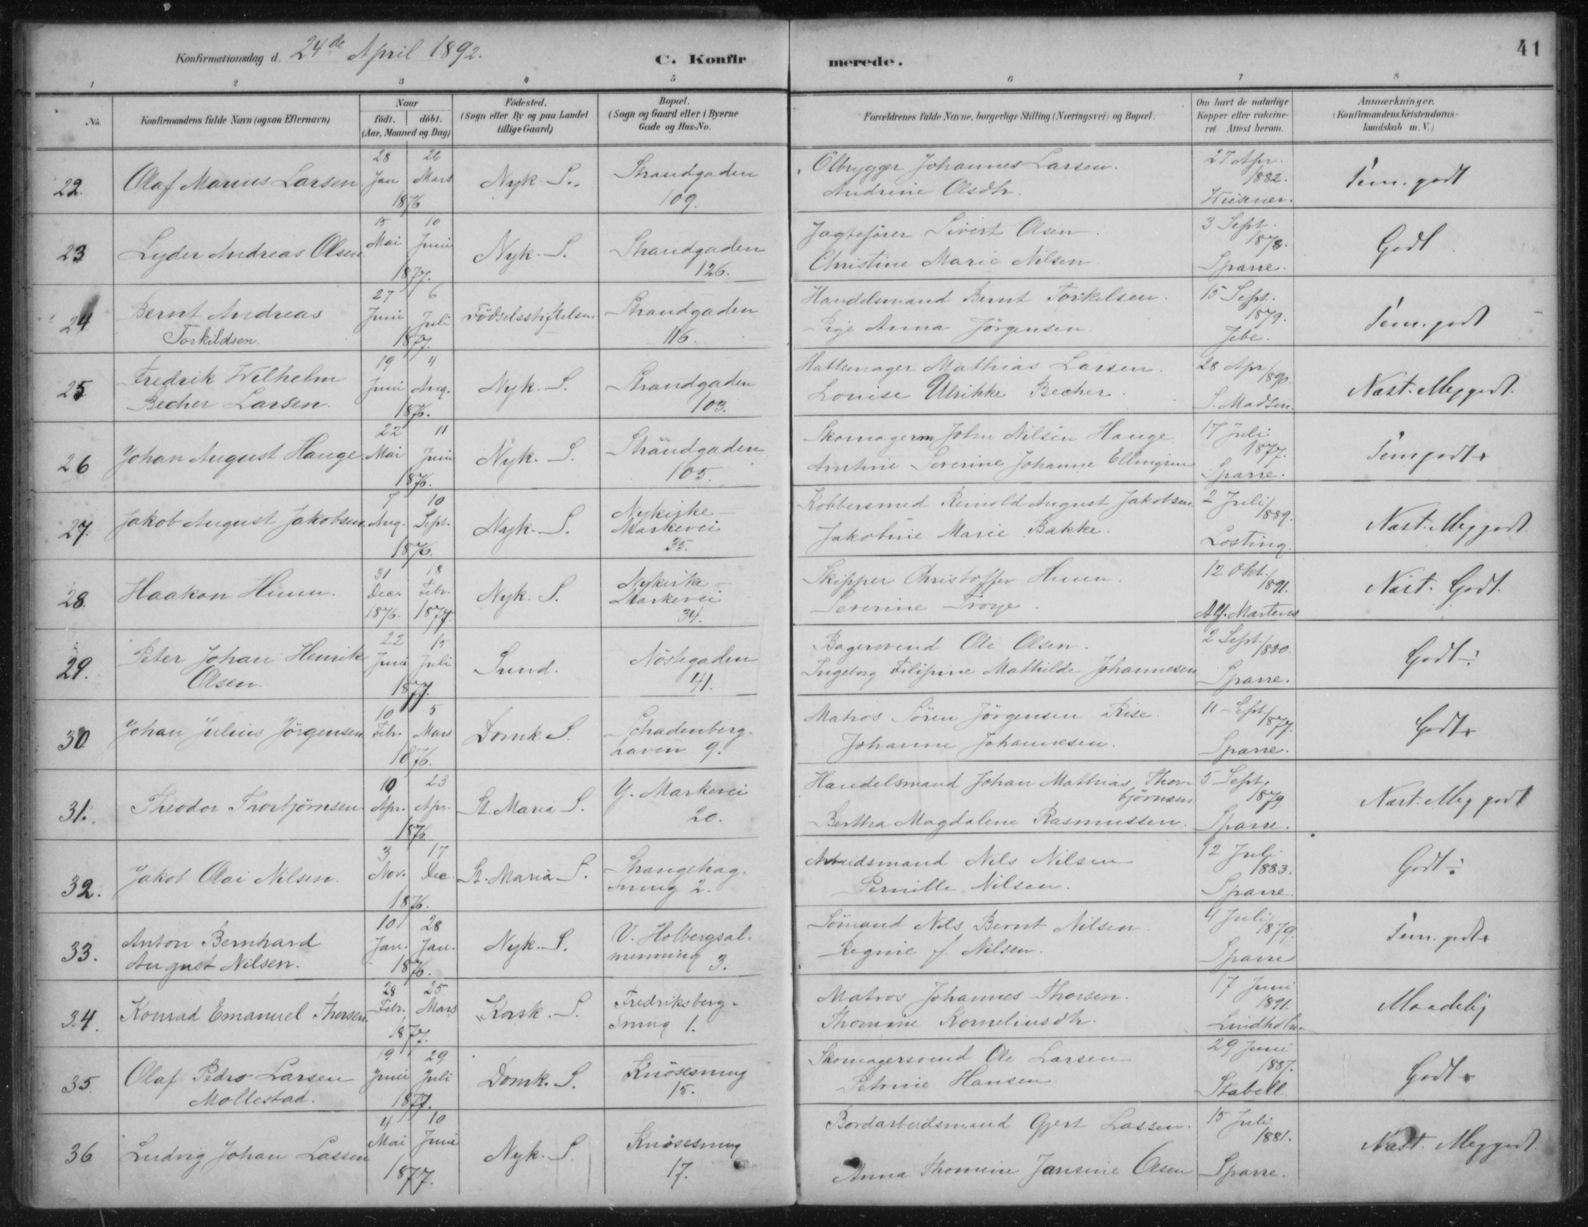 Konfirmationsdag d. 24de April 1892.
C. Konfir
merede.
41
1 2 3 4 5 6 7 8
No.
Konfirmandens fulde Navn (ogsaa Efternavn)
Naar
født. døbt.
(Aar, Maaned og Dag)
Fødested.
(Sogn eller By og paa Landet
tillige Gaard)
Bopæl.
(Sogn og Gaard eller i Byerne
Gade og Hus-No.
Forældrenes fulde Navne, borgerlige Stilling (Næringsvei) og Bopæl.
Om havt de naturlige
Kopper eller vakcine-
ret Attest herom.
Anmærkninger.
(Konfirmandens Kristendoms-
kundskab m. V.)
22. Olaf Marius Larsen
28 Jan 26 Mars
1876
Nyk. S.
Strandgaden
109.
Ølbrygger Johannes Larsen.
Andrine Olsdtr.
27 Apr.
1882.
Tem. godt
23 Lyder Andreas Olsen
15 Mai 10 Juni
1877.
Nyk. S.
Strandgaden
126.
Jagtefører Sivert Olsen.
Christine Marie Nilsen
3 Sept.
1878.
Sparre.
Godt
24 Bernt Andreas
Torkildsen.
27 Juni 6 Juli
1877.
Fødselsstiftelsen
Strandgaden
116.
Handelsmand Bernt Torkelsen.
Anna Jörgensen
15 Sept.
1879.
Jebe.
Tem. godt
25 Fredrik Wilhelm
Becher Larsen.
19 Juni " Aug.
1876.
Nyk. S.
Strandgaden
103.
Hattemager Mathias Larsen.
Louise Ulrikke Becher.
28 Apr.
1890.
S. Madsen.
Næst. Meg godt.
26 Johan August Hauge
22 Mai 11 Juni
1876.
Nyk. S.
Strandgaden
105.
Skomagerm John Nilsen Hauge
Severine Johanne Ellingsen
17 Juli
1877.
Sparre.
Tem godt
27. Jakob August Jakobsen
7 Aug. 10 Sept.
1876.
Nyk. S.
Nykirke-
Markevei
35.
Kobbersmed Reinold August Jakobsen
Jakobine Marie Bakke.
2 Juli
1889.
Losting.
Næst. Meg godt
28. Haakon
31 Dec. 18 Febr.
1876. 1877.
Nyk. S.
Nykirke-
Markevei
34.
Skipper Christoffer
Severine Troye.
12 Okt.
1891.
Alf. Martens
Næst. Godt.
29. Peter Johan Henrik
Olsen.
22 Juni 15 Juli
1877.
Sund.
Nöstegaden
41.
Bagersvend Ole Olsen.
Ingeborg Filipine Mathilde Johannesen
2 Sept.
1880.
Sparre.
Godt
30 Johan Julius Jörgensen
10 Febr. 5 Mars
1876.
Domk S.
Schadenberg-
haven 9.
Matros Sören Jörgensen Riise.
Johanne Johannesen.
11 Sept.
1877.
Sparre.
Godt
31. Theodor Thorbjörnsen
10 Apr. 23 Apr.
1876.
St. Maria S.
Y. Markevei
20.
Handelsmand Johan Mathias Thor-
björnsen
Bertha Magdalene Rasmussen.
5 Sept.
1879.
Sparre.
Næst. Meg godt
32. Jakob Olai Nilsen.
3 Nov. 17 Dec
1876.
St. Maria S.
Strangehag.
2.
Arbeidsmand Nils Nilsen
Pernille Nilsen.
12 Juli
1883.
Sparre.
Godt
33. Anton Bernhard
August Nilsen.
10 Jan. 28 Jan.
1876.
Nyk. S.
V. Holbergsal-
menning 3.
Sömand Nils Bernt Nilsen
Regine f. Nilsen.
4 Juli
1879.
Sparre
Tem. godt
34. Konrad Emanuel Thorsen
28 Febr. 25 Mars
1877.
Korsk. S.
Fredriksberg-
smug 1.
Matros Johannes Thorsen.
Thomine Korneliusdtr.
17 Juni
1891.
Lindholm.
Maadelig
35. Olaf Pedro Larsen
Mollestad.
19 Juni 29 Juli
1877.
Domk. S.
Knösesmug
15.
Skomagersvend Ole Larsen
Petrine Hansen
29 Juni
1887.
Stabell.
Godt
36 Ludvig Johan Lassen
4 Mai 10 Juni
1877.
Nyk. S.
Knösesmug
17.
Bordarbeidsmand Gjert Lassen.
Anna Thomine Jansine Olsen
15 Juli
1881.
Sparre.
Næst. Meg godt.